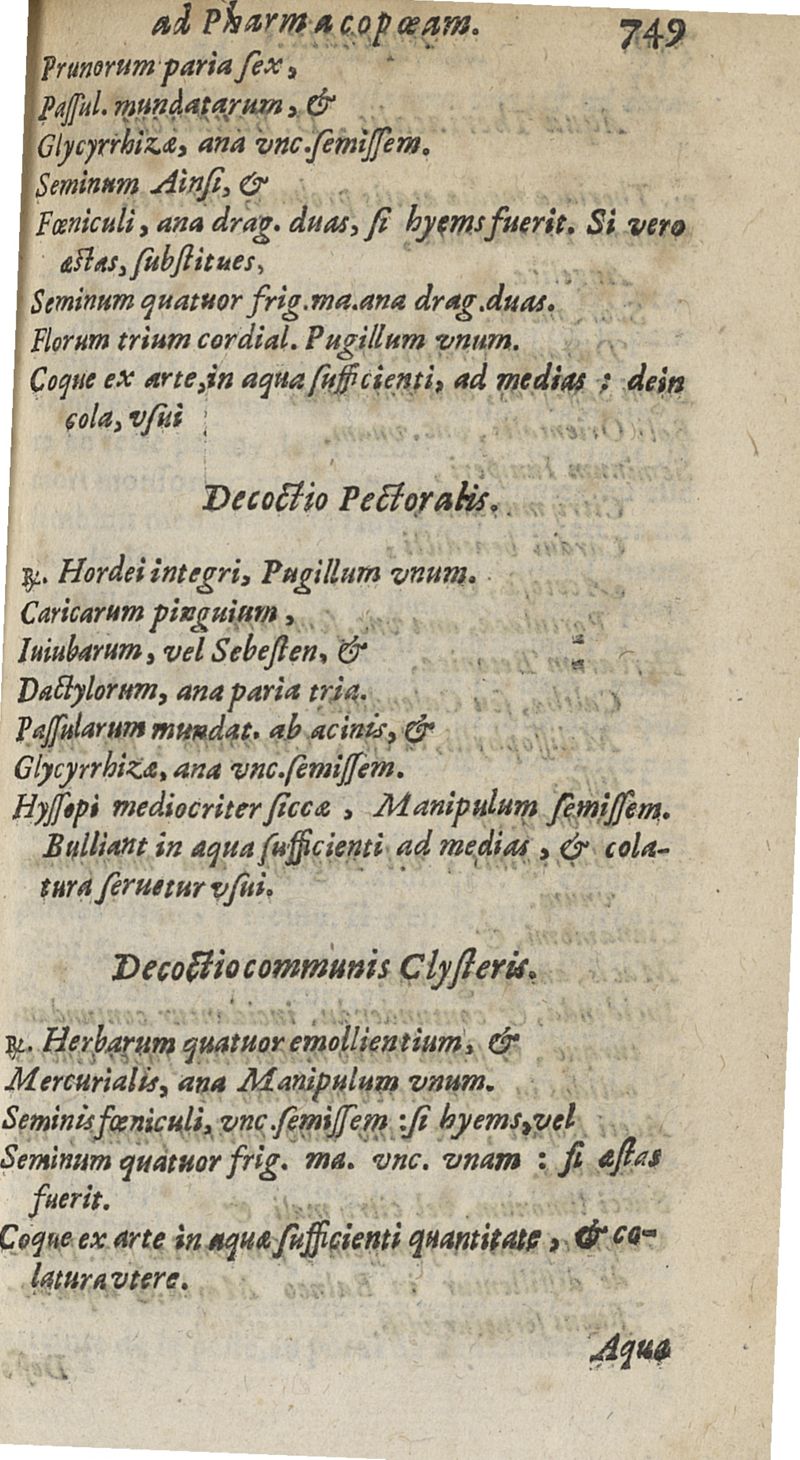 ad Pharmacopœam. 749
Prunorum paria ſex,
Paſſul. mundatarum, &
Glycyrrhizæ, ana vnc.ſemiſſem.
Seminum Ainſi, &
Fœniculi, ana drag. duas, ſi hyems fuerit. Si vero
æſtas, ſubſtitues,
Seminum quatuor frig.ma.ana drag.duas.
Florum trium cordial. Pugillum vnum.
Coque ex arte,in aqua ſufficienti, ad medias : dein
cola, vſui
Decoctio Pectoralis.
℞. Hordei integri, Pugillum vnum.
Caricarum pinguium,
Iuiubarum, vel Sebeſten, &
Dactylorum, ana paria tria.
Paſſularum mundat. ab acinis, &
Glycyrrhizæ, ana vnc.ſemiſſem.
Hyſſopi mediocriter ſiccæ , Manipulum ſemiſſem.
Bulliant in aqua ſufficienti ad medias , & cola-
tura ſeruetur vſui.
Decoctio communis Clyſteris.
℞. Herbarum quatuor emollientium, &
Mercurialis, ana Manipulum vnum.
Seminis fœniculi, vnc.ſemiſſem :ſi hyems,vel
Seminum quatuor frig. ma. vnc. vnam : ſi æſtas
fuerit.
Coque ex arte in aquæ ſufficienti quantitate , & co-
latura vtere.
Aqua